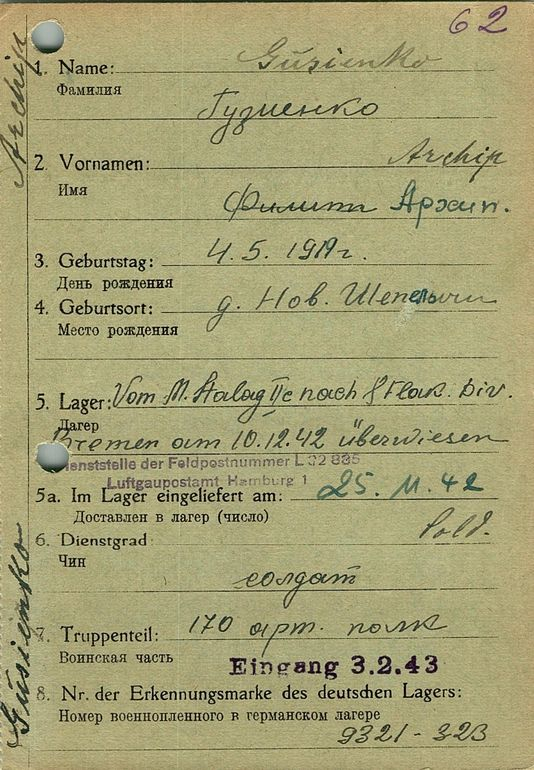 62
1. Name: Gusienko
Фамилия
Гузиенко
2. Vornamen: Archip
Имя
Филипп Архип.
3. Geburtstag: 4.5.1919г.
День рождения
4. Geburtsort: д. Нов. Шепеличи
Место рождения
5. Lager: Vom M. Stalag IIc nach 8 Flak. Div.
Лагер
Bremen am 10.12.42 überwiesen
Dienststelle der Feldpostnummer L 32 835
Luftgaupostamt Hamburg 1
5a. Im Lager eingeliefert am: 25. 11. 42
Доставлен в лагер (число)
6. Dienstgrad: Sold.
Чин
солдат
7. Truppenteil: 170 арт. полк
Воинская часть
Eingang 3.2.43
8. Nr. der Erkennungsmarke des deutschen Lagers:
Номер военнопленного в германском лагере
9321-323
Archip
Gusienko